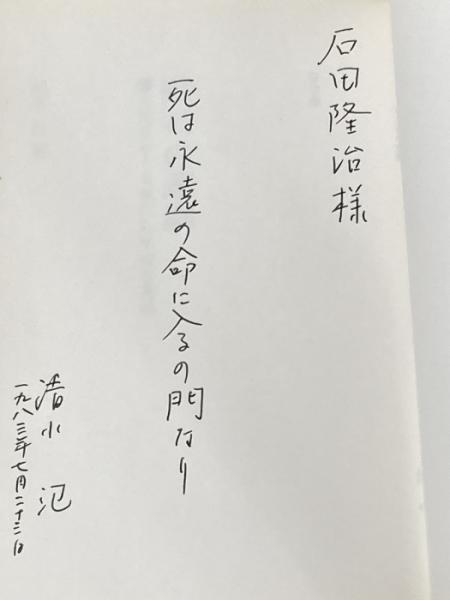 石田隆治様
死は永遠の命に入るの門なり
清水氾
一九八三年七月二十三日